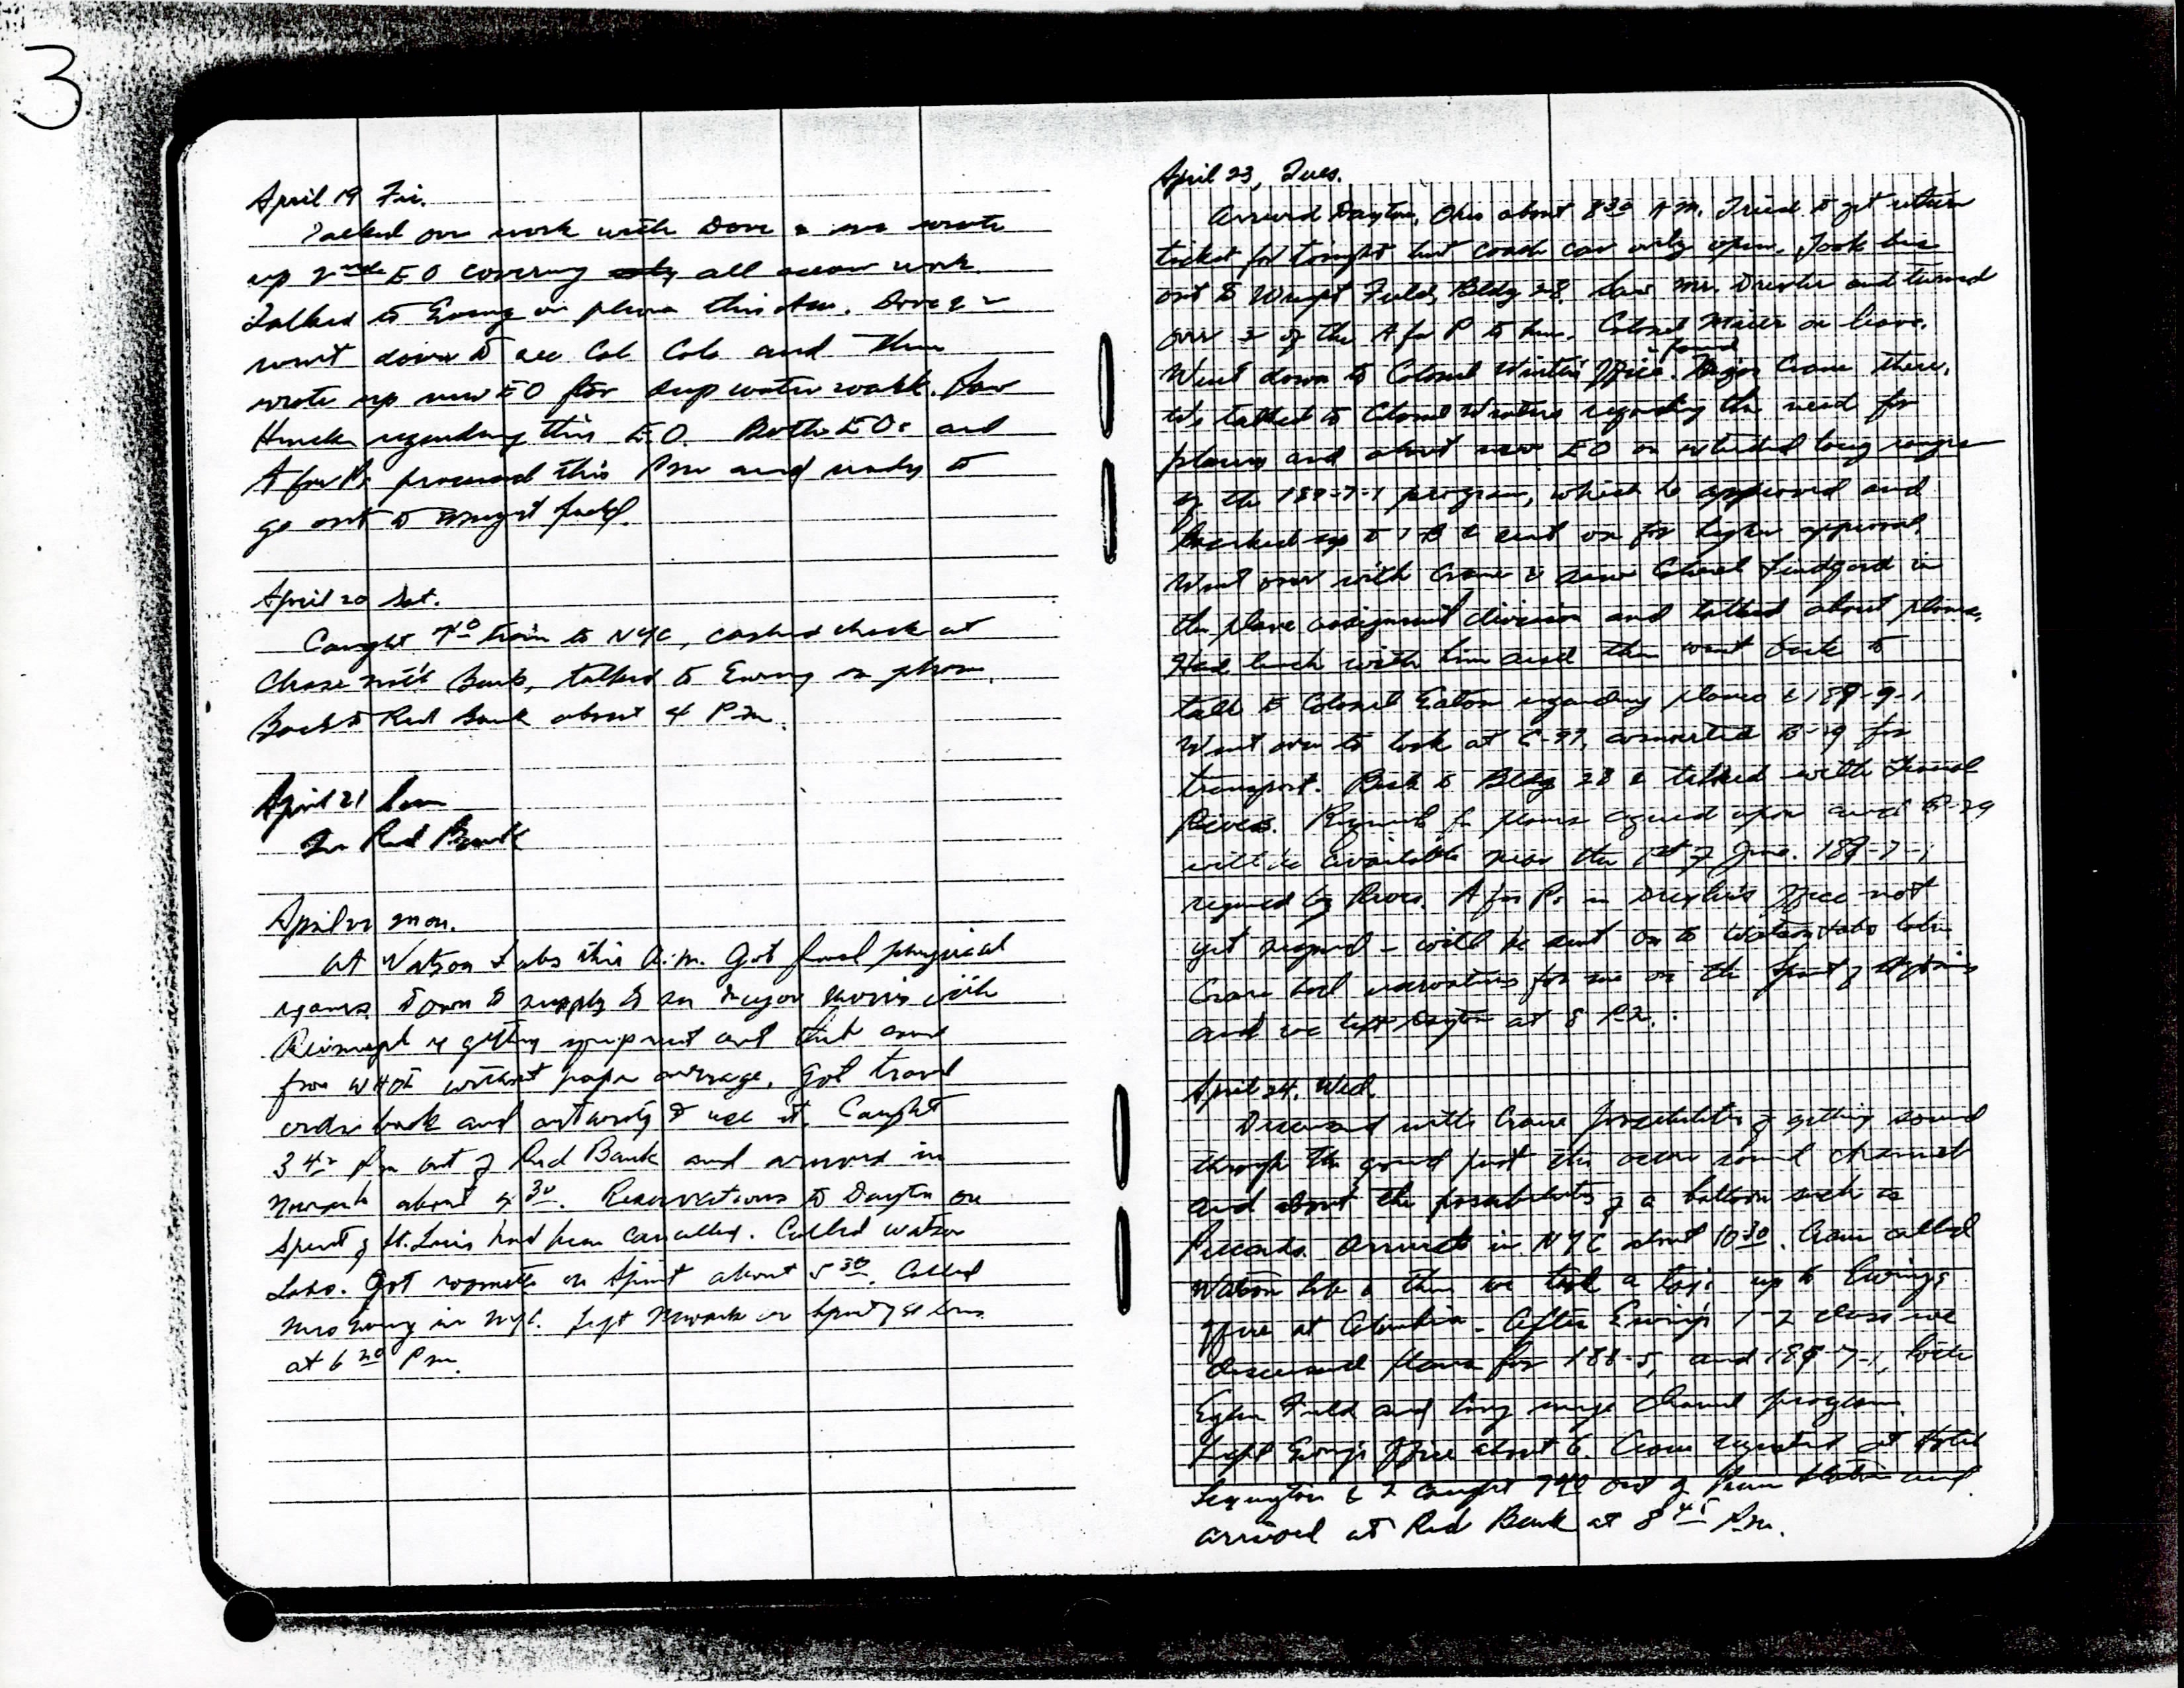 3
April 19 Fri.
Talked over work with Dave & we wrote
up 2nd EO covering only all ocean work.
Talked to Ewing on phone this AM. Dave &
went down to see Col Cole and then
wrote up new EO for deep water work. Saw
regarding this E.O. Both EOs and
A for Ps processed this PM and ready to
go out to Wright field.
April 20 Sat.
Caught 7 train to NYC, cashed check at
Chase Nat'l Bank, talked to Ewing on phone.
Back to Red Bank about 4 PM.
April 21 Sun
In Red Bank
April 22 Mon.
At Watson Labs this A.M. Got final physical
exam. Down to supply to see Major with
getting equipment and that
from without paper coverage. Got travel
order back and authority to use it. Caught
3 42 Pm out of Red Bank and arrived in
Newark about 4 30. Reservations to Dayton on
Spirit of St. Louis had been cancelled. Called Watson
Labs. Got roomette on Spirit about 5 30. Called
in NYC. Left Newark on Spirit of St Louis
at 6 20 Pm.
April 23, Tues.
Arrived Dayton, Ohio about 8 30 AM. Tried to get return
ticket for tonight but coach car only open. Took bus
out to Wright Field, Bldg 28. Saw Mr. Drexler and turned
over of the A for P to him. Colonel Maier on leave.
Went down to Colonel Winter's office. & found Major Crane there.
We talked to Colonel Winters regarding the need for
planes and about new EO on extended long range
of the 189-7-1 program, which he approved and
marked up to 1B & sent on for higher approval.
Went over with Crane & saw Colonel in
the plane assignment division and talked about planes.
Had lunch with him and then went back to
talk to Colonel Eaton regarding planes & 189-9-1.
Went over to look at C-97, converted B-29 for
transport. Back to Bldg 28 & talked with
Rives. for planes agreed upon and B-29
will be available near the 1st of June. 189-7-1
signed by Rives. A for Ps in Drexler's office not
yet signed - will be sent on to Watson Labs later.
Crane had reservations for me on the Spirit of St Louis
and we left Dayton at 8 P.M.
April 24, Wed.
Discussed with Crane possibilities of getting sound
through the ground just like ocean sound channel
and about the possibilities of a balloon such as
Piccards. Arrived in NYC about 10 30. Crane called
Watson Lab & then we took a taxi up to Ewing's
office at Columbia. After Ewing's 1-2 class we
discussed plans for 188-5, and 189-7-1, both
Eglin Field and long range channel program.
Left Ewing's office about 6. Crane registered at Hotel
Lexington & I caught 7 40 out of Penn Station and
arrived at Red Bank at 8 45 Pm.